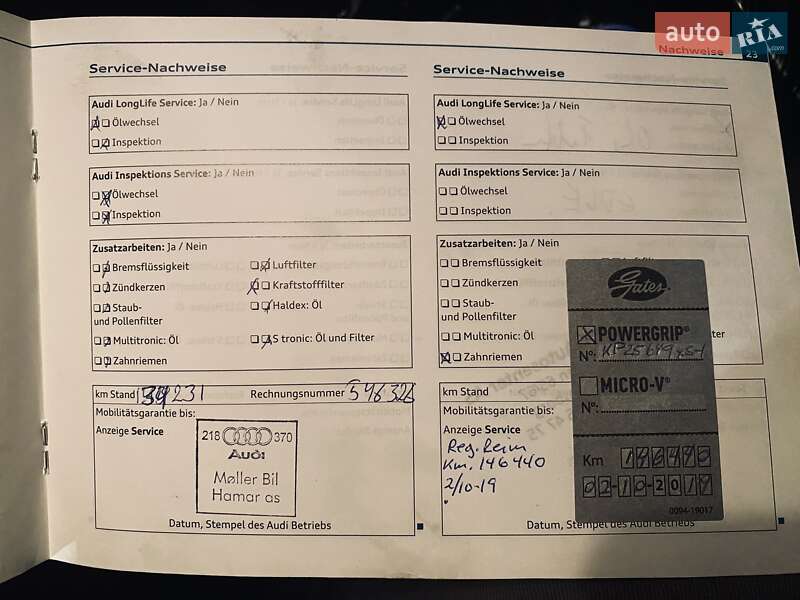 auto RIA.com
Nachweise
23
Service-Nachweise
Audi LongLife Service: Ja / Nein
Ölwechsel
Inspektion
Audi Inspektions Service: Ja / Nein
Ölwechsel
Inspektion
Zusatzarbeiten: Ja / Nein
Bremsflüssigkeit
Luftfilter
Zündkerzen
Kraftstofffilter
Staub-
und Pollenfilter
Haldex: Öl
Multitronic: Öl
S tronic: Öl und Filter
Zahnriemen
km Stand
Rechnungsnummer 546326
Mobilitätsgarantie bis:
Anzeige Service
218 370
Audi
Møller Bil
Hamar as
Datum, Stempel des Audi Betriebs
Service-Nachweise
Audi LongLife Service: Ja / Nein
Ölwechsel
Inspektion
Audi Inspektions Service: Ja / Nein
Ölwechsel
Inspektion
Zusatzarbeiten: Ja / Nein
Bremsflüssigkeit
Zündkerzen
Staub-
und Pollenfilter
Multitronic: Öl
Zahnriemen
km Stand
Mobilitätsgarantie bis:
Anzeige Service
Reg. Reim
Km. 146440
2/10-19
Datum, Stempel des Audi Betriebs
Gates
POWERGRIP®
N°: KP25649xs-1
MICRO-V®
N°:
Km 146440
02-10-2019
0094-19017